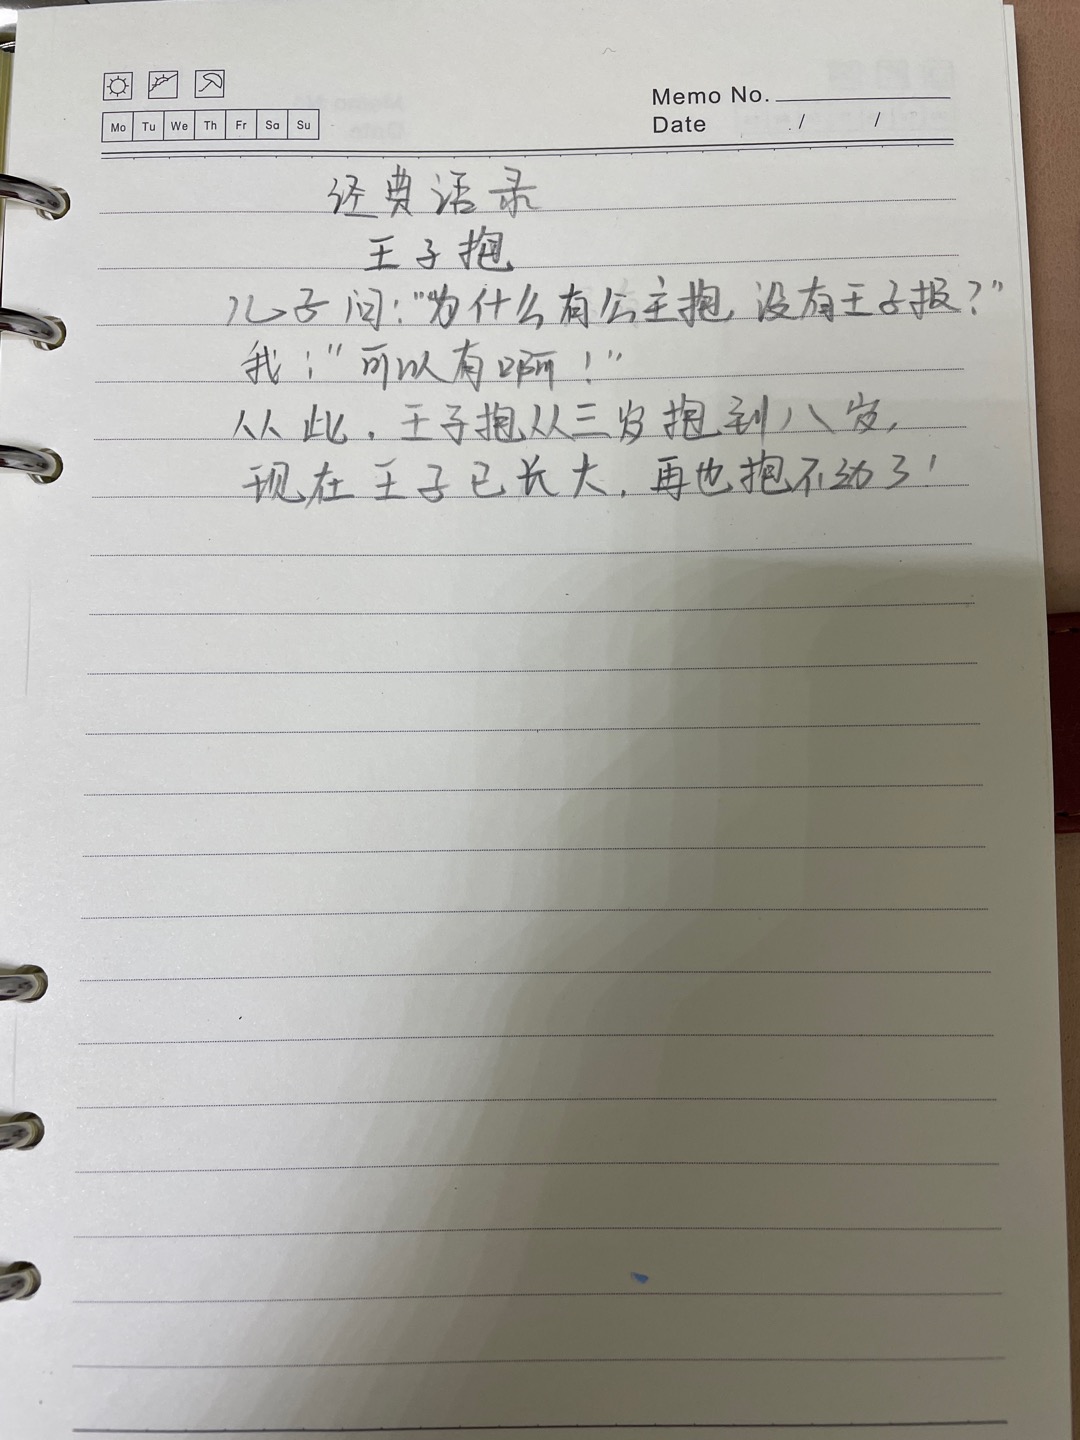 Memo No.
Mo Tu We Th Fr Sa Su
Date / /
经典语录
王子抱
儿子问:"为什么有公主抱,没有王子报?"
我:"可以有啊!"
从此,王子抱从三岁抱到八岁,
现在王子已长大,再也抱不动了!